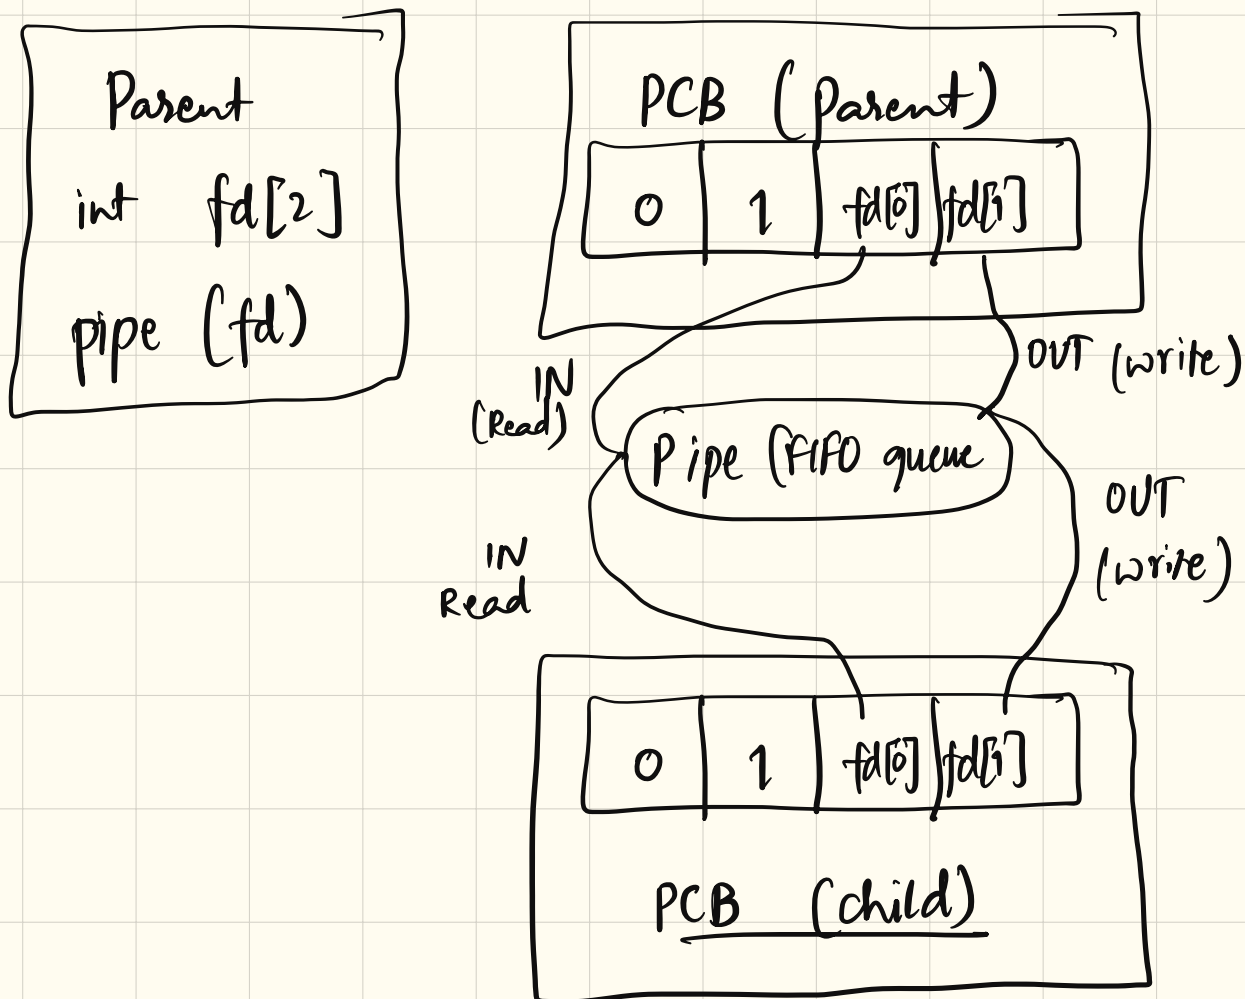 Parent
int fd[2]
pipe (fd)
PCB (Parent)
0 1 fd[0] fd[1]
OUT (write)
IN
(Read)
Pipe (FIFO queue
OUT
(write)
IN
Read
0 1 fd[0] fd[1]
PCB (child)